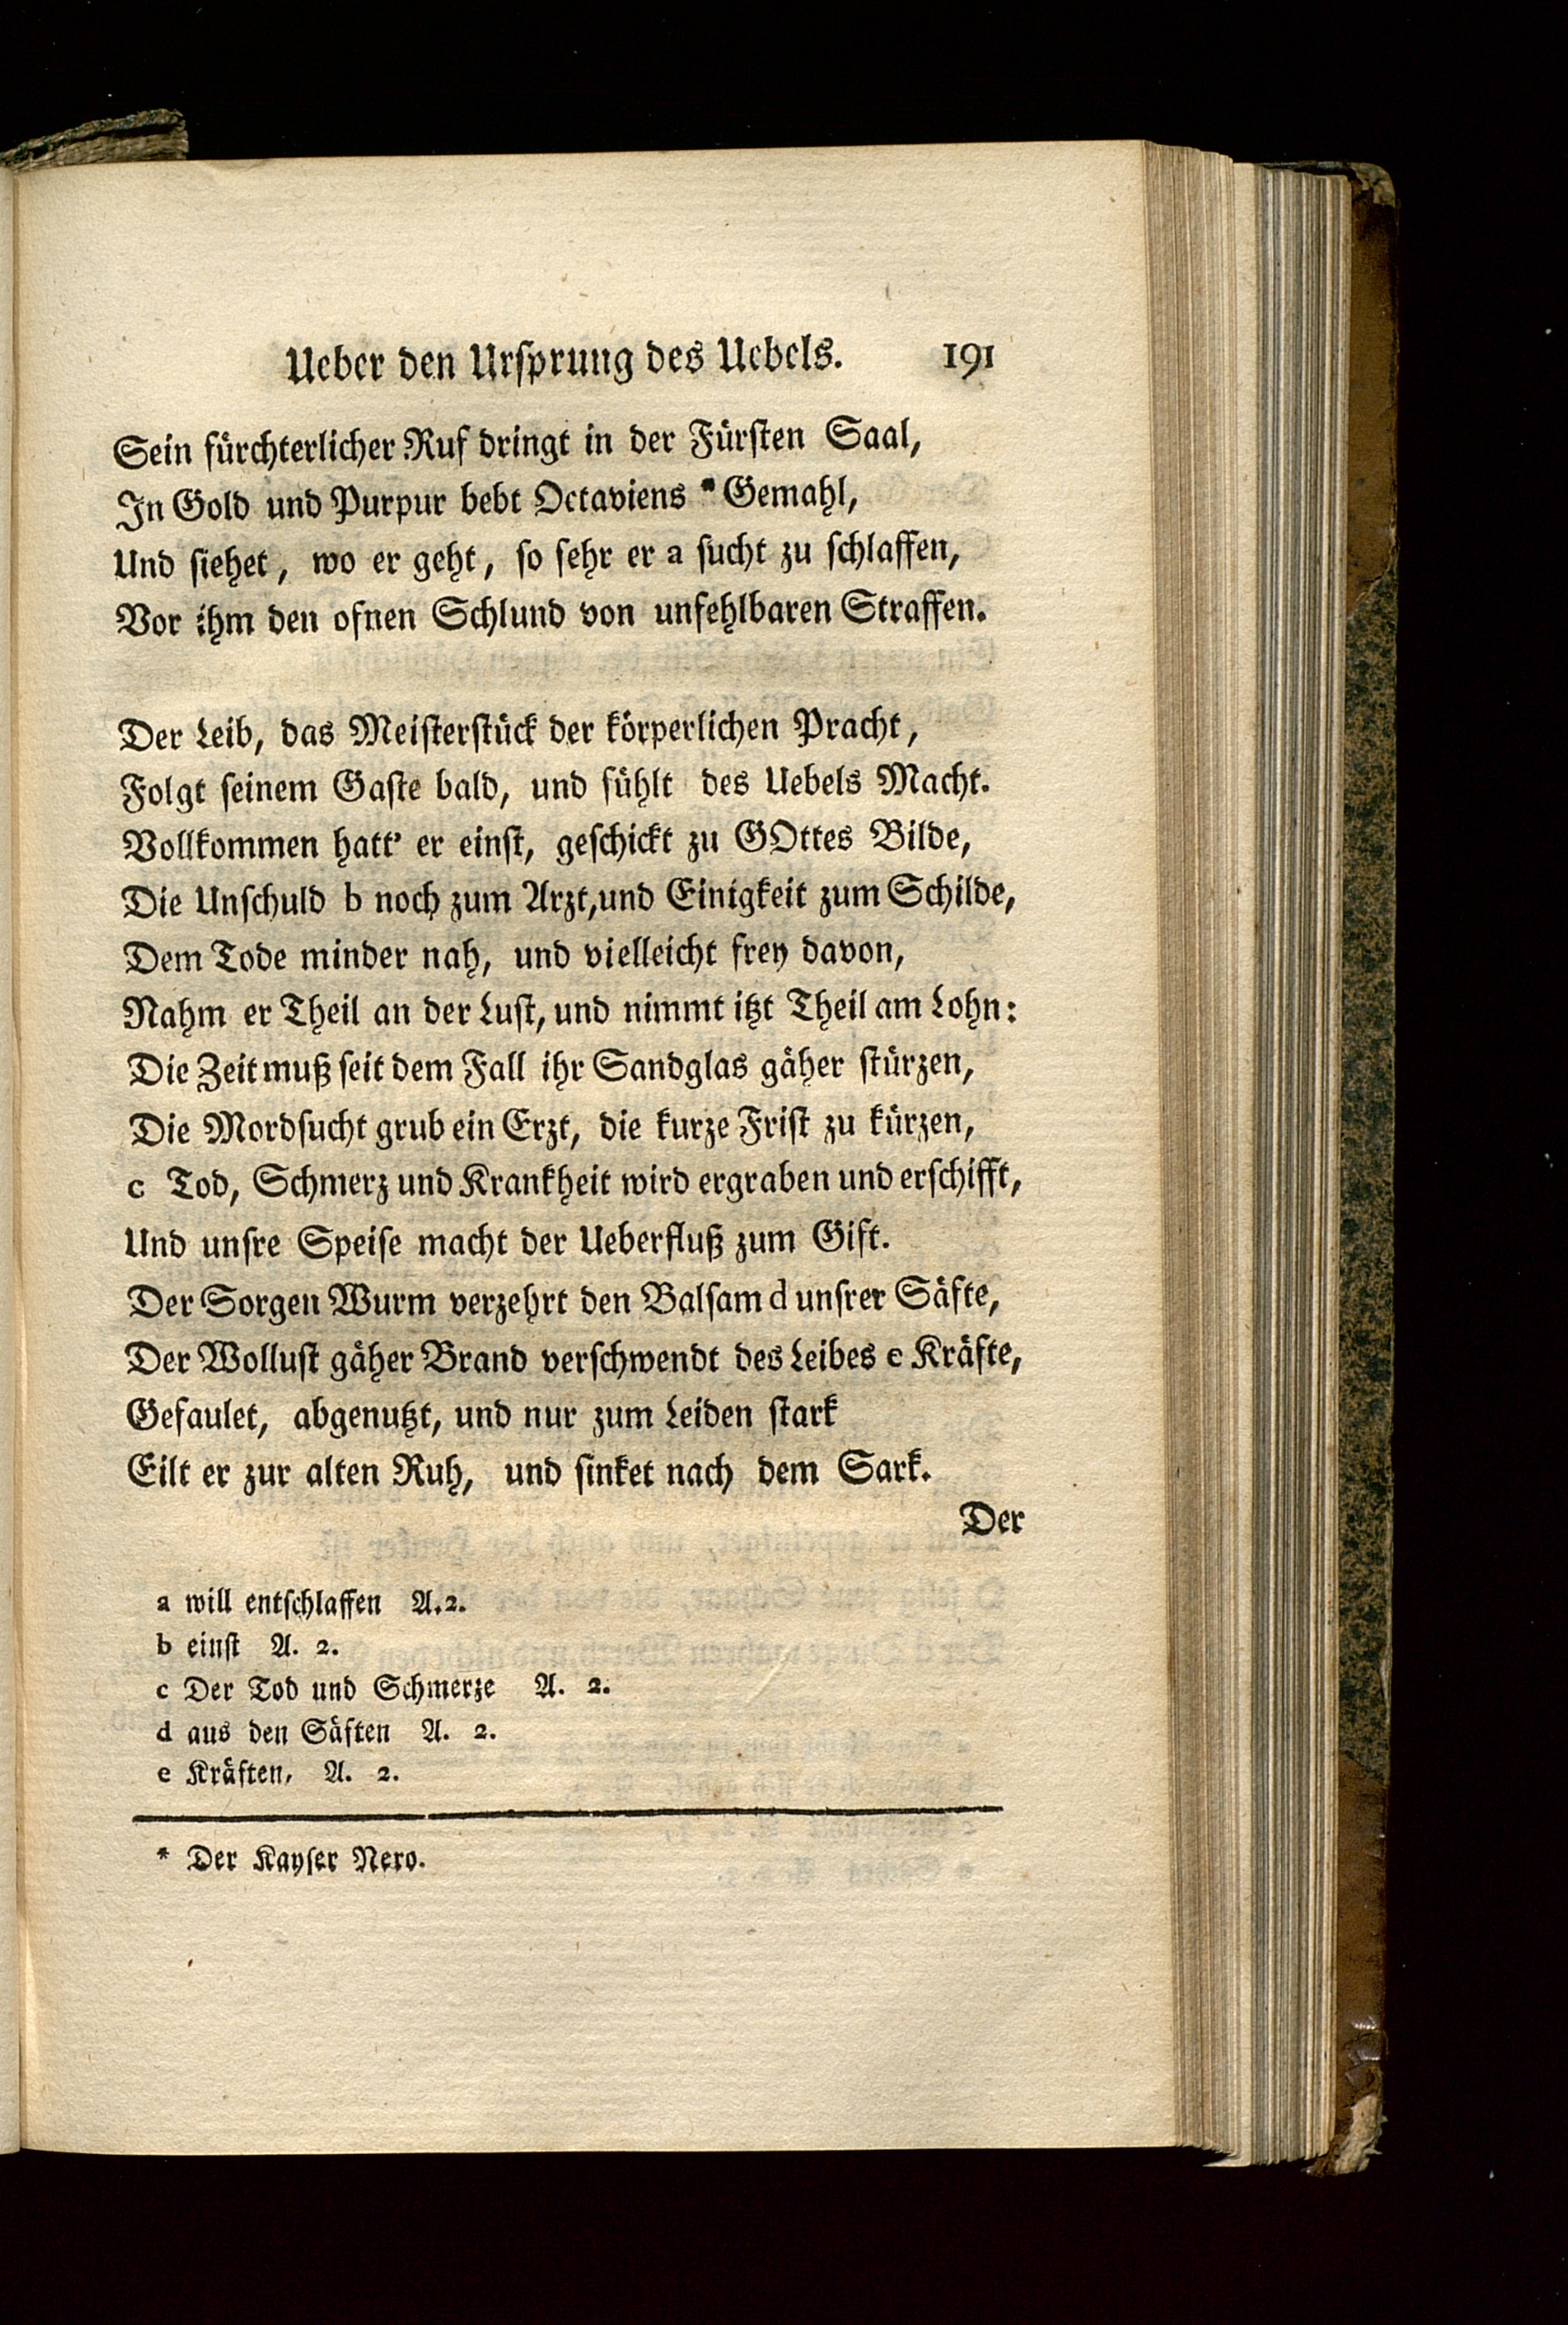 Ueber den Ursprung des Uebels. 191
Sein fürchterlicher Ruf dringt in der Fürsten Saal,
In Gold und Purpur bebt Octaviens * Gemahl,
Und siehet, wo er geht, so sehr er a sucht zu schlaffen,
Vor ihm den ofnen Schlund von unfehlbaren Straffen.
Der Leib, das Meisterstück der körperlichen Pracht,
Folgt seinem Gaste bald, und fühlt des Uebels Macht.
Vollkommen hatt' er einst, geschickt zu GOttes Bilde,
Die Unschuld b noch zum Arzt, und Einigkeit zum Schilde,
Dem Tode minder nah, und vielleicht frey davon,
Nahm er Theil an der Lust, und nimmt itzt Theil am Lohn:
Die Zeit muß seit dem Fall ihr Sandglas gäher stürzen,
Die Mordsucht grub ein Erzt, die kurze Frist zu kürzen,
c Tod, Schmerz und Krankheit wird ergraben und erschifft,
Und unsre Speise macht der Ueberfluß zum Gift.
Der Sorgen Wurm verzehrt den Balsam d unsrer Säfte,
Der Wollust gäher Brand verschwendt des Leibes e Kräfte,
Gefaulet, abgenutzt, und nur zum Leiden stark
Eilt er zur alten Ruh, und sinket nach dem Sark.
Der
a will entschlaffen A. 2.
b einst A. 2.
c Der Tod und Schmerze A. 2.
d aus den Säften A. 2.
e Kräften, A. 2.
* Der Kayser Nero.